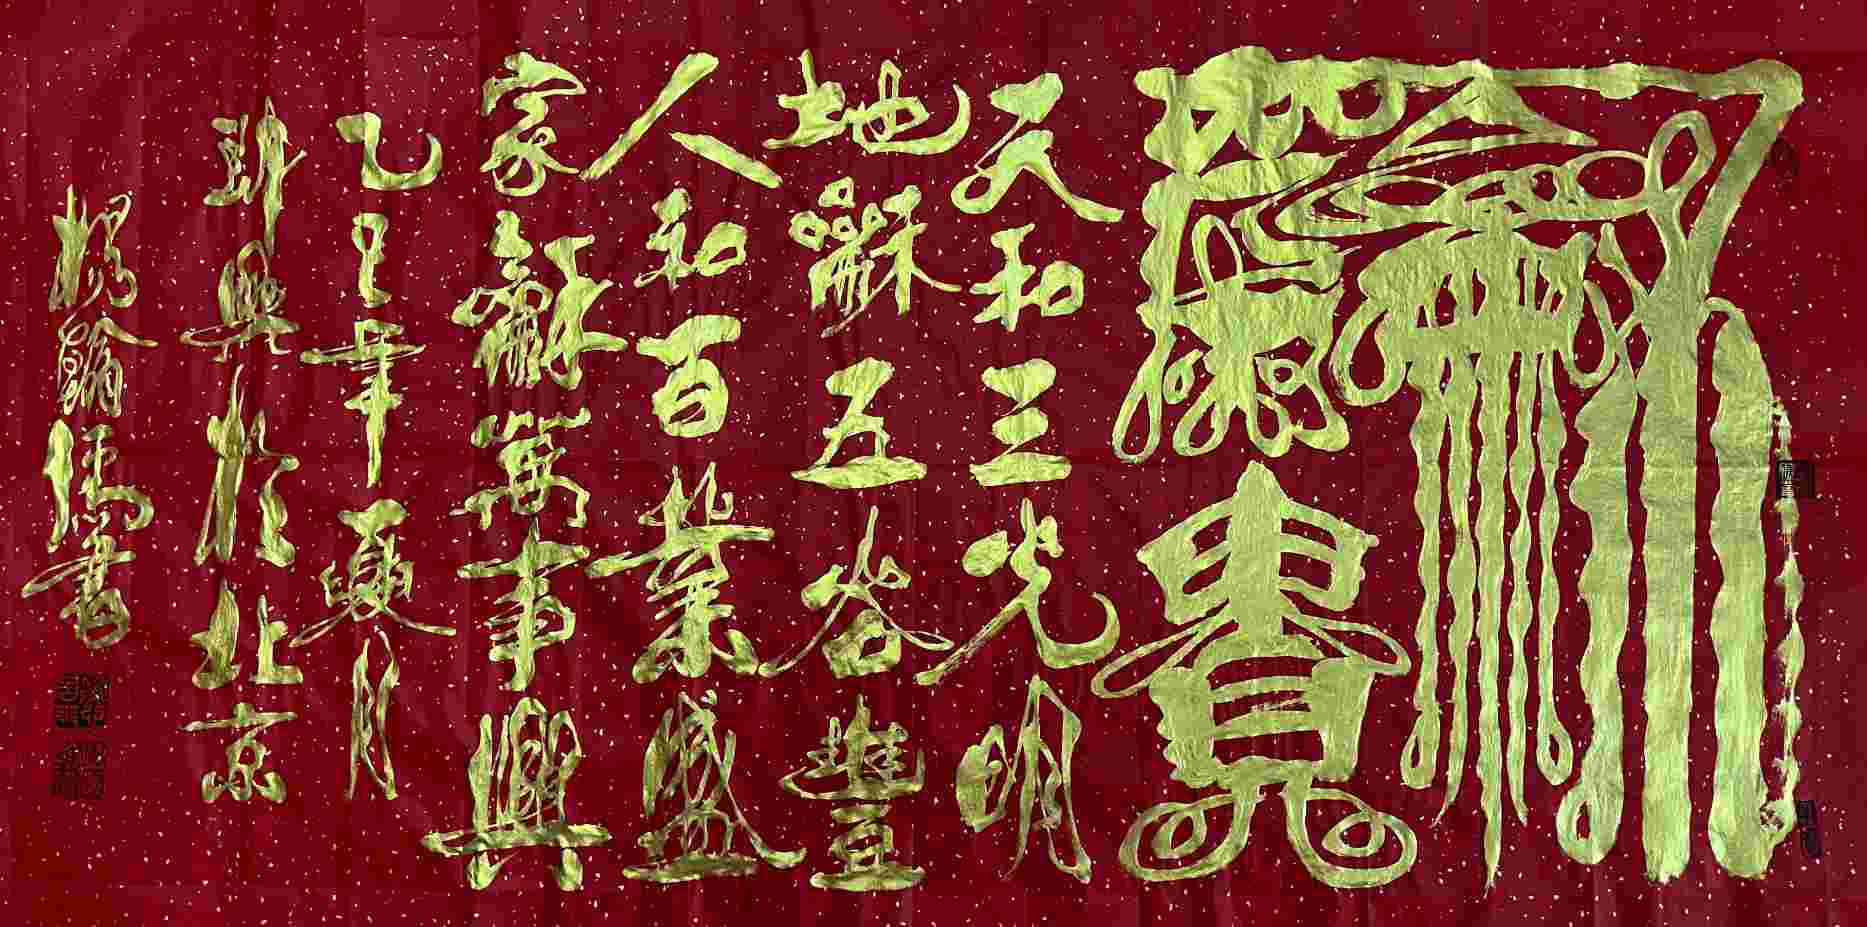 龢貴
天和三光明
地龢五谷豐
人和百業盛
家龢萬事興
乙巳年夏月
興於北京
楊翰儒書